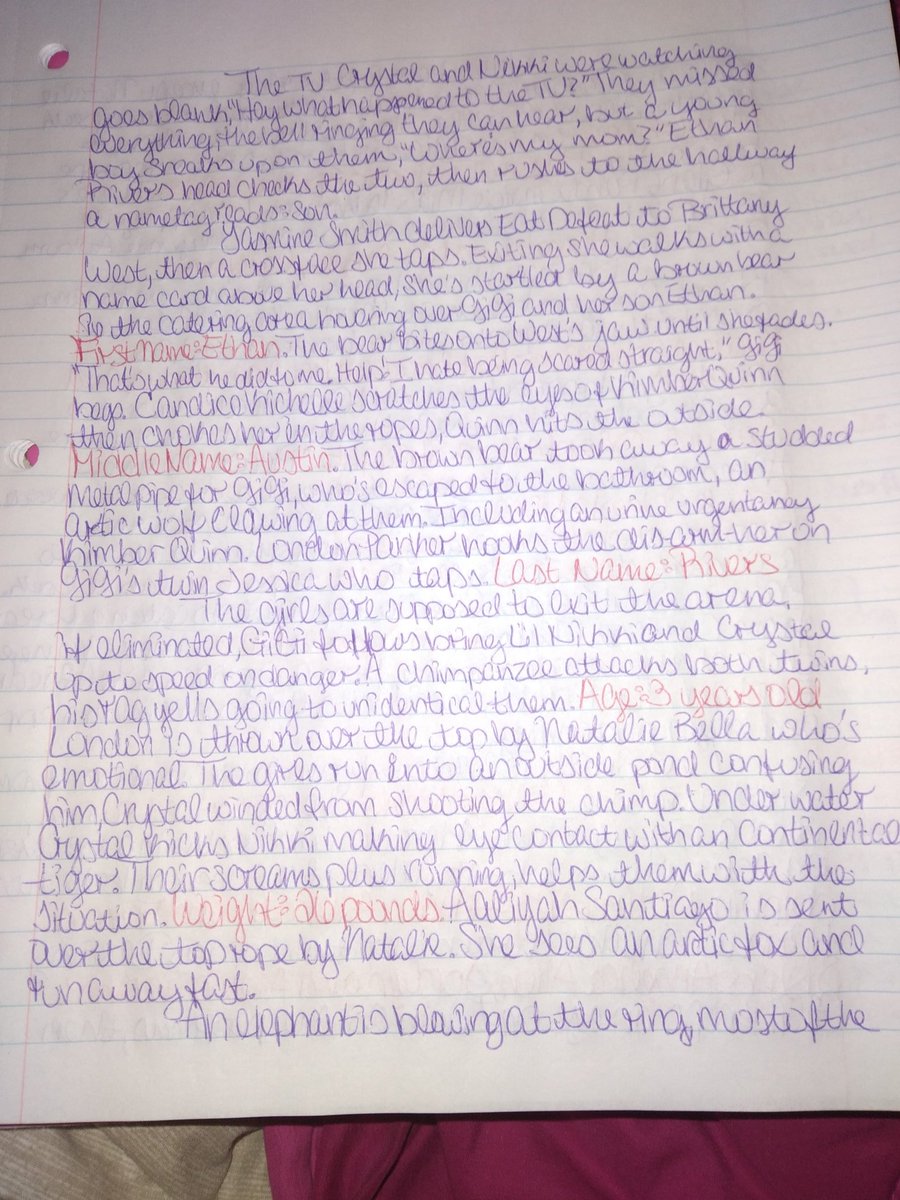 The TV Crystal and Nikki were watching
goes blank, "Hey what happened to the TV?" They missed
everything, the bell ringing they can hear, but a young
boy sneaks upon them, "Where's my mom?" Ethan
Rivers head checks the two, then rushes to the hallway
a nametag reads: Son.
Yasmine Smith delivers Eat Defeat to Brittany
West, then a crossface she taps. Exiting she walks with a
name card above her head, she's startled by a brown bear
in the catering area hovering over GiGi and her son Ethan.
First Name: Ethan. The bear bites onto West's jaw until she fades.
"That's what he did to me. Help! I hate being scared straight," GiGi
begs. Candice Michelle scratches the eyes of Kimber Quinn
then chokes her in the ropes, Quinn hits the outside.
Middle Name: Austin. The brown bear took away a studded
metal pipe for GiGi, who's escaped to the bathroom, an
artic wolf clawing at them. Including an urine urgentancy
Kimber Quinn. London Parker hooks the dis-arm-her on
GiGi's twin Jessica who taps. Last Name: Rivers
The girls are supposed to exit the arena,
if eliminated, GiGi follows bring Lil Nikki and Crystal
up to speed on danger. A chimpanzee attacks both twins,
his rag yells going to unidentical them. Age: 3 years old
London is thrown over the top by Natalie Bella who's
emotional. The girls run into an outside pond confusing
him, Crystal winded from shooting the chimp. Under water
Crystal kicks Nikki making eye contact with an Continental
tiger. Their screams plus running, helps them with the
situation. Weight: 26 pounds. Aaliyah Santiago is sent
over the top rope by Natalie. She sees an artic fox and
run away fast.
An elephant is blowing at the ring, most of the